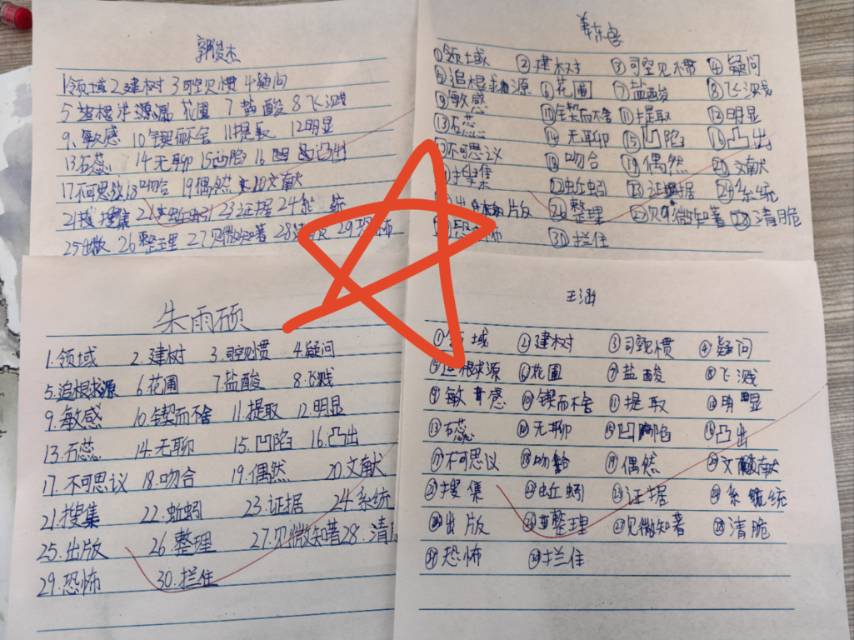 郭俊杰
1领域 2建树 3司空见惯 4疑问
5追根 源 花圃 7盐酸 8飞溅
9.敏感 10锲而不舍 11提取 12明显
13石蕊 14无聊 15凹陷 16 凸出
17不可思 18吻合 19偶然 20文献
21 搜集 22 蚯蚓 23证据 24 统
25出版 26整理 27见微知著 28 29恐怖
姜东
①领域 ②建树 ③司空见惯 ④疑问
⑤追根 源 ⑥花圃 ⑦盐酸 ⑧飞溅
敏感 ⑩锲而不舍 ⑪提取 ⑫明显
⑬石蕊 ⑭无聊 ⑮凹陷 ⑯凸出
不可思议 ⑱吻合 ⑲偶然 ⑳文献
搜集 蚯蚓 证据 系统
出 版 整理 见微知著 清脆
怖 拦住
朱雨硕
1.领域 2.建树 3.司空见惯 4.疑问
5.追根求源 6花圃 7盐酸 8.飞溅
9.敏感 10.锲而不舍 11.提取 12.明显
13.石蕊 14.无聊 15.凹陷 16.凸出
17.不可思议 18.吻合 19.偶然 20.文献
21.搜集 22.蚯蚓 23.证据 24.系统
25.出版 26.整理 27.见微知著 28.清
29.恐怖 30.拦住
王涵
① 域 ②建树 ③司空见惯 ④疑问
⑤追根求源 ⑥花圃 ⑦盐酸 ⑧飞溅
⑨敏 感 ⑩锲而不舍 ⑪提取 ⑫明显
⑬石蕊 ⑭无聊 ⑮凹陷 ⑯凸出
⑰不可思议 ⑱吻 ⑲偶然 ⑳文 献
㉑搜集 ㉒蚯蚓 ㉓证据 ㉔系 统
㉕出版 ㉖整理 ㉗见微知著 ㉘清脆
㉙恐怖 ㉚拦住